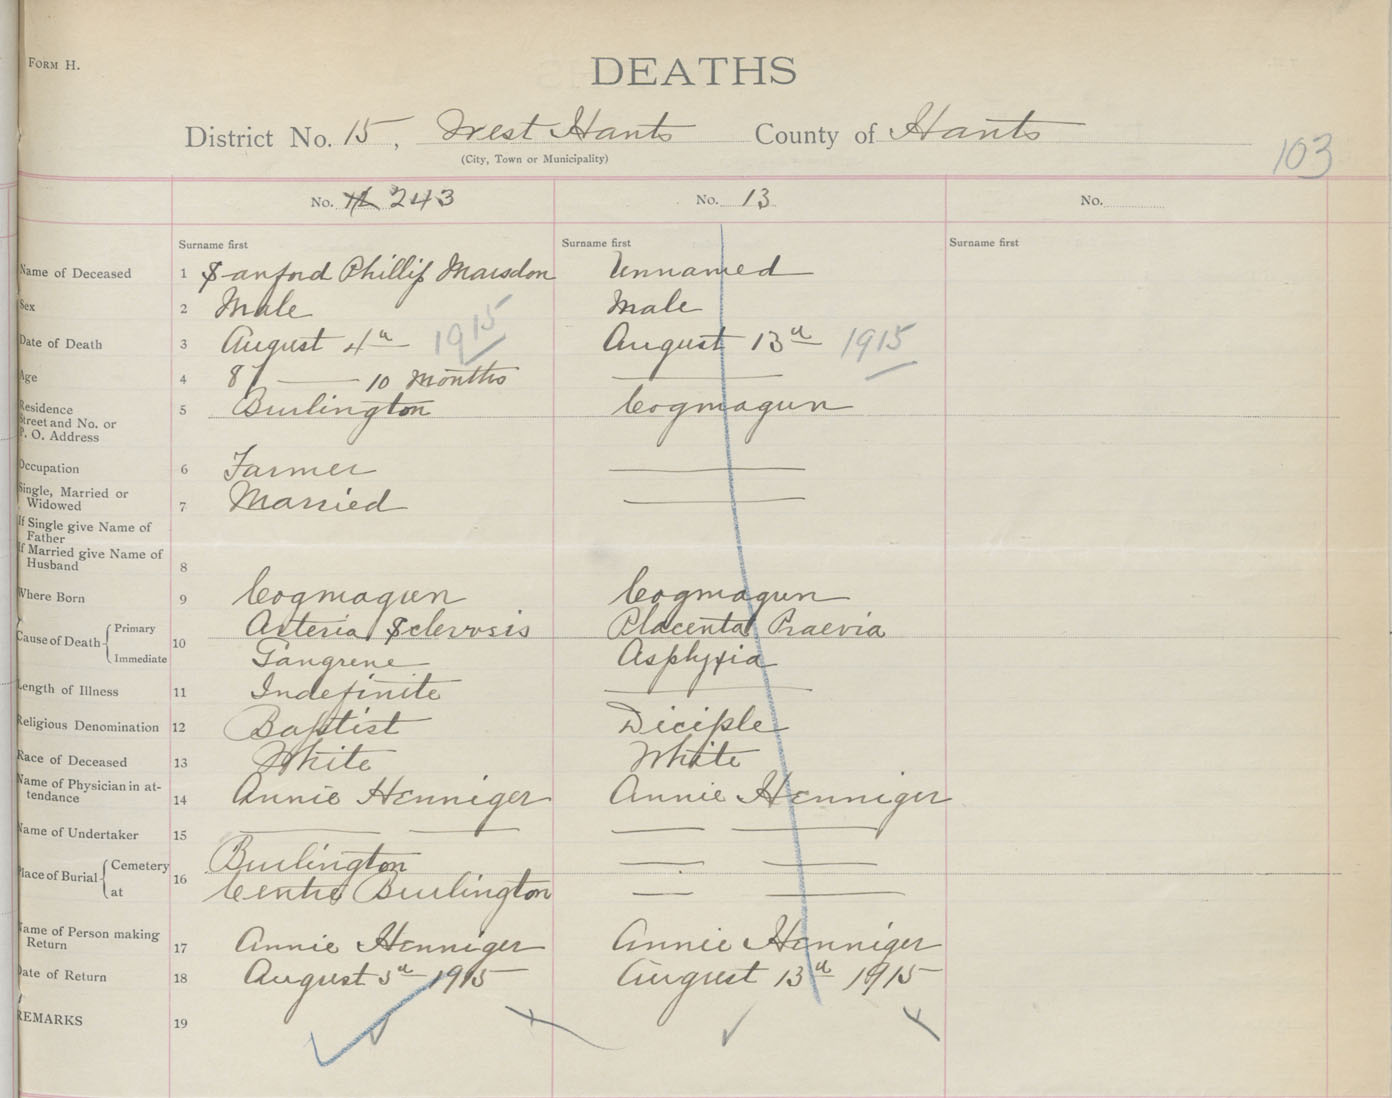 FORM H.
DEATHS
District No. 15, West Hants County of Hants
(City, Town or Municipality)
103
No. 243 No. 13 No.
Surname first Surname first Surname first
Name of Deceased 1 Sanford Phillip Marsdon Unnamed
Sex 2 Male Male
Date of Death 3 August 4th 1915 August 13th 1915
Age 4 87 — 10 Months —
Residence
Street and No. or
P. O. Address 5 Burlington Cogmagun
Occupation 6 Farmer —
Single, Married or
Widowed 7 Married —
If Single give Name of
Father
If Married give Name of
Husband 8
Where Born 9 Cogmagun Cogmagun
Cause of Death 10 Primary Arteria Sclerosis Placenta Praevia
Immediate Gangrene Asphyxia
Length of Illness 11 Indefinite —
Religious Denomination 12 Baptist Diciple
Race of Deceased 13 White White
Name of Physician in at-
tendance 14 Annie Henniger Annie Henniger
Name of Undertaker 15 — — — —
Place of Burial 16 Cemetery Burlington — —
at Centre Burlington — —
Name of Person making
Return 17 Annie Henniger Annie Henniger
Date of Return 18 August 5th 1915 August 13th 1915
REMARKS 19